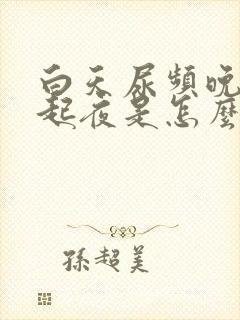 白天尿頻晚
起夜是怎麼
孫超美